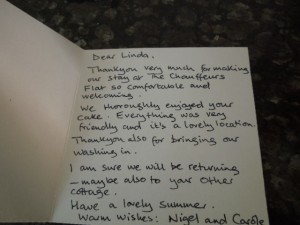 Dear Linda,
Thankyou very much for making
our stay at The Chauffeurs
Flat so comfortable and
welcoming.
We thoroughly enjoyed your
cake. Everything was very
friendly and it's a lovely location.
Thankyou also for bringing our
washing in.
I am sure we will be returning
– maybe also to your other
cottage.
Have a lovely summer.
Warm wishes: Nigel and Carole